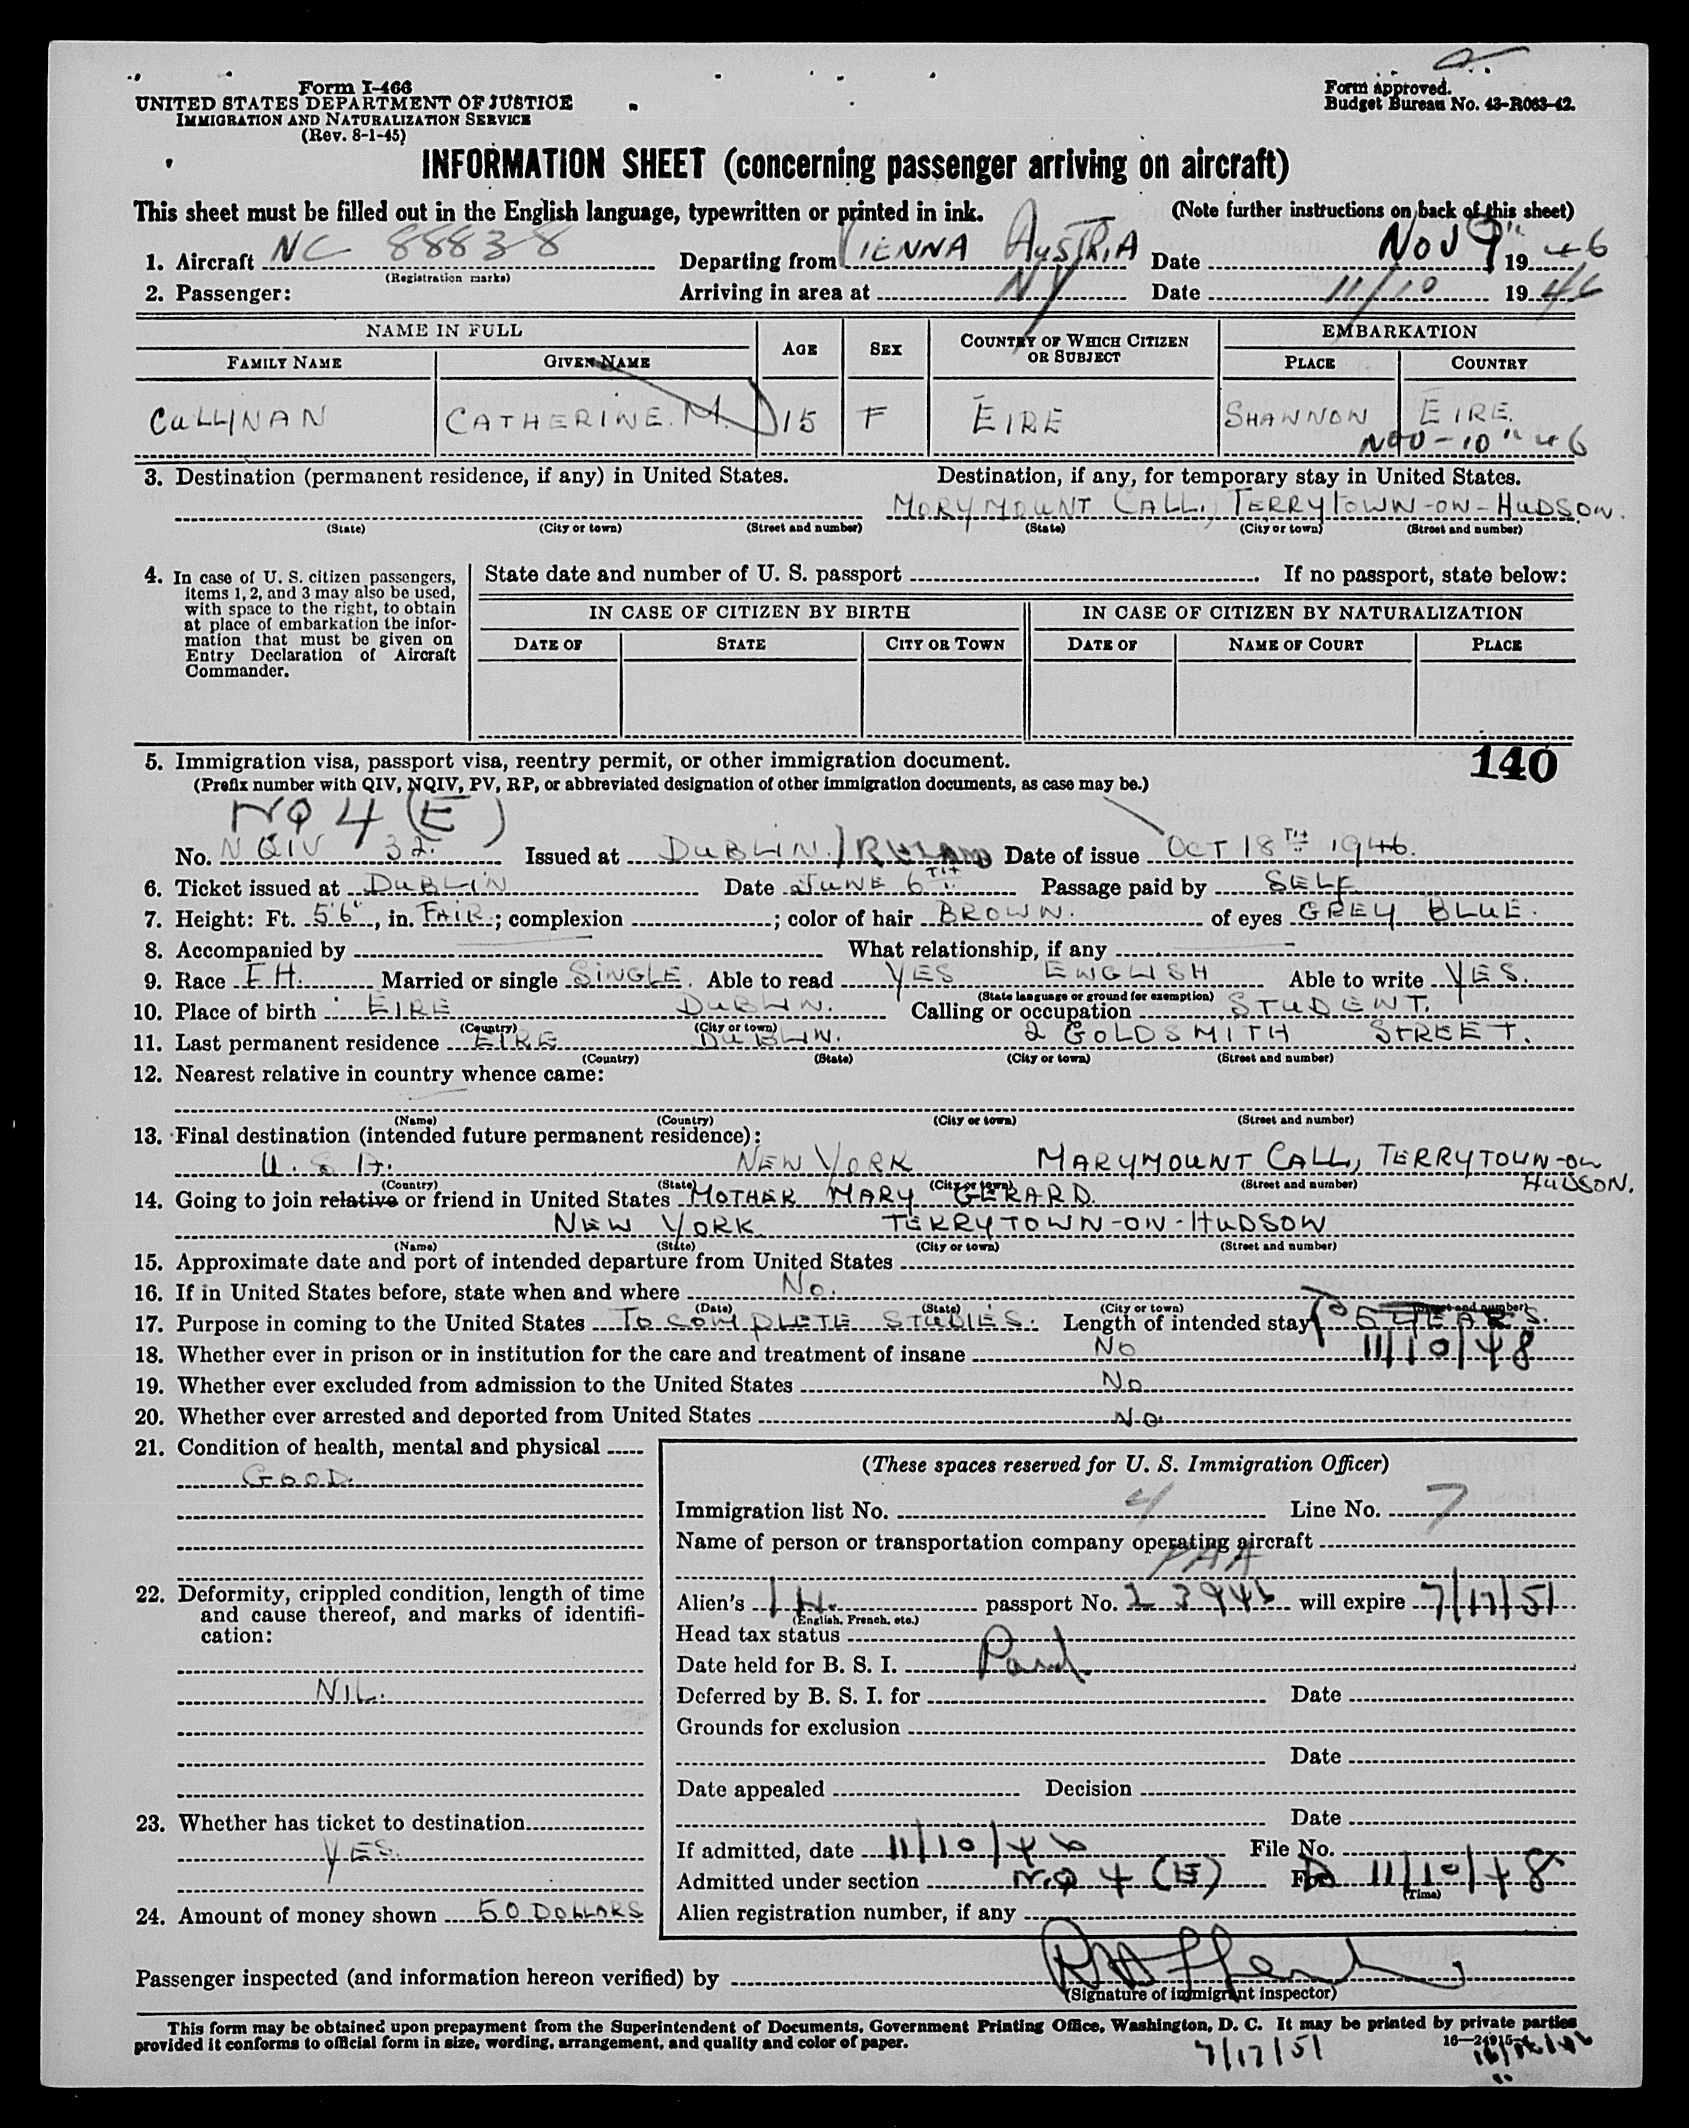 Form I-466
UNITED STATES DEPARTMENT OF JUSTICE
IMMIGRATION AND NATURALIZATION SERVICE
(Rev. 8-1-45)
Form approved.
Budget Bureau No. 43-R063-42.
INFORMATION SHEET (concerning passenger arriving on aircraft)
This sheet must be filled out in the English language, typewritten or printed in ink. (Note further instructions on back of this sheet)
1. Aircraft NC 88838 Departing from VIENNA AUSTRIA Date NOV 9th 1946
(Registration marks)
2. Passenger: Arriving in area at NY Date 11/10 1946
NAME IN FULL AGE SEX COUNTRY OF WHICH CITIZEN OR SUBJECT EMBARKATION
FAMILY NAME GIVEN NAME PLACE COUNTRY
CULLINAN CATHERINE. M. 15 F EIRE SHANNON EIRE.
NOV-10th 46
3. Destination (permanent residence, if any) in United States. Destination, if any, for temporary stay in United States.
MORYMOUNT CALL., TERRYTOWN-ON-HUDSON.
(State) (City or town) (Street and number) (State) (City or town) (Street and number)
4. In case of U. S. citizen passengers, items 1, 2, and 3 may also be used, with space to the right, to obtain at place of embarkation the information that must be given on Entry Declaration of Aircraft Commander.
State date and number of U. S. passport . If no passport, state below:
IN CASE OF CITIZEN BY BIRTH IN CASE OF CITIZEN BY NATURALIZATION
DATE OF STATE CITY OR TOWN DATE OF NAME OF COURT PLACE
140
5. Immigration visa, passport visa, reentry permit, or other immigration document.
(Prefix number with QIV, NQIV, PV, RP, or abbreviated designation of other immigration documents, as case may be.)
NQ 4 (E)
No. NQIV 32. Issued at DUBLIN. IRELAND Date of issue OCT 18TH 1946.
6. Ticket issued at DUBLIN Date JUNE 6TH Passage paid by SELF
7. Height: Ft. 5'6", in. FAIR.; complexion ; color of hair BROWN. of eyes GREY BLUE.
8. Accompanied by What relationship, if any
9. Race E.H. Married or single SINGLE. Able to read YES ENGLISH Able to write YES.
(State language or ground for exemption)
10. Place of birth EIRE DUBLIN. Calling or occupation STUDENT.
(Country) (City or town)
11. Last permanent residence EIRE DUBLIN. 2 GOLDSMITH STREET.
(Country) (State) (City or town) (Street and number)
12. Nearest relative in country whence came:
(Name) (Country) (City or town) (Street and number)
13. Final destination (intended future permanent residence):
U.S.A. NEW YORK MARYMOUNT CALL, TERRYTOWN-ON HUDSON.
(Country) (State) (City or town) (Street and number)
14. Going to join relative or friend in United States MOTHER MARY GERARD.
NEW YORK TERRYTOWN-ON-HUDSON
(Name) (State) (City or town) (Street and number)
15. Approximate date and port of intended departure from United States
16. If in United States before, state when and where No.
(Date) (State) (City or town) (Street and number)
17. Purpose in coming to the United States TO COMPLETE STUDIES. Length of intended stay YEARS.
18. Whether ever in prison or in institution for the care and treatment of insane No 11/10/48
19. Whether ever excluded from admission to the United States No
20. Whether ever arrested and deported from United States No.
21. Condition of health, mental and physical
GOOD.
22. Deformity, crippled condition, length of time and cause thereof, and marks of identification:
NIL.
23. Whether has ticket to destination
YES.
24. Amount of money shown 50 DOLLARS
(These spaces reserved for U. S. Immigration Officer)
Immigration list No. 4 Line No. 7
Name of person or transportation company operating aircraft
PAA
Alien's passport No. 23946 will expire 7/17/51
(English, French, etc.)
Head tax status
Date held for B. S. I. Paid
Deferred by B. S. I. for Date
Grounds for exclusion
Date
Date appealed Decision
Date
If admitted, date 11/10/46 File No.
Admitted under section NQ 4 (E) For 11/10/48
(Time)
Alien registration number, if any
Passenger inspected (and information hereon verified) by
(Signature of immigrant inspector)
This form may be obtained upon prepayment from the Superintendent of Documents, Government Printing Office, Washington, D. C. It may be printed by private parties
provided it conforms to official form in size, wording, arrangement, and quality and color of paper.
16-24915
7/17/51